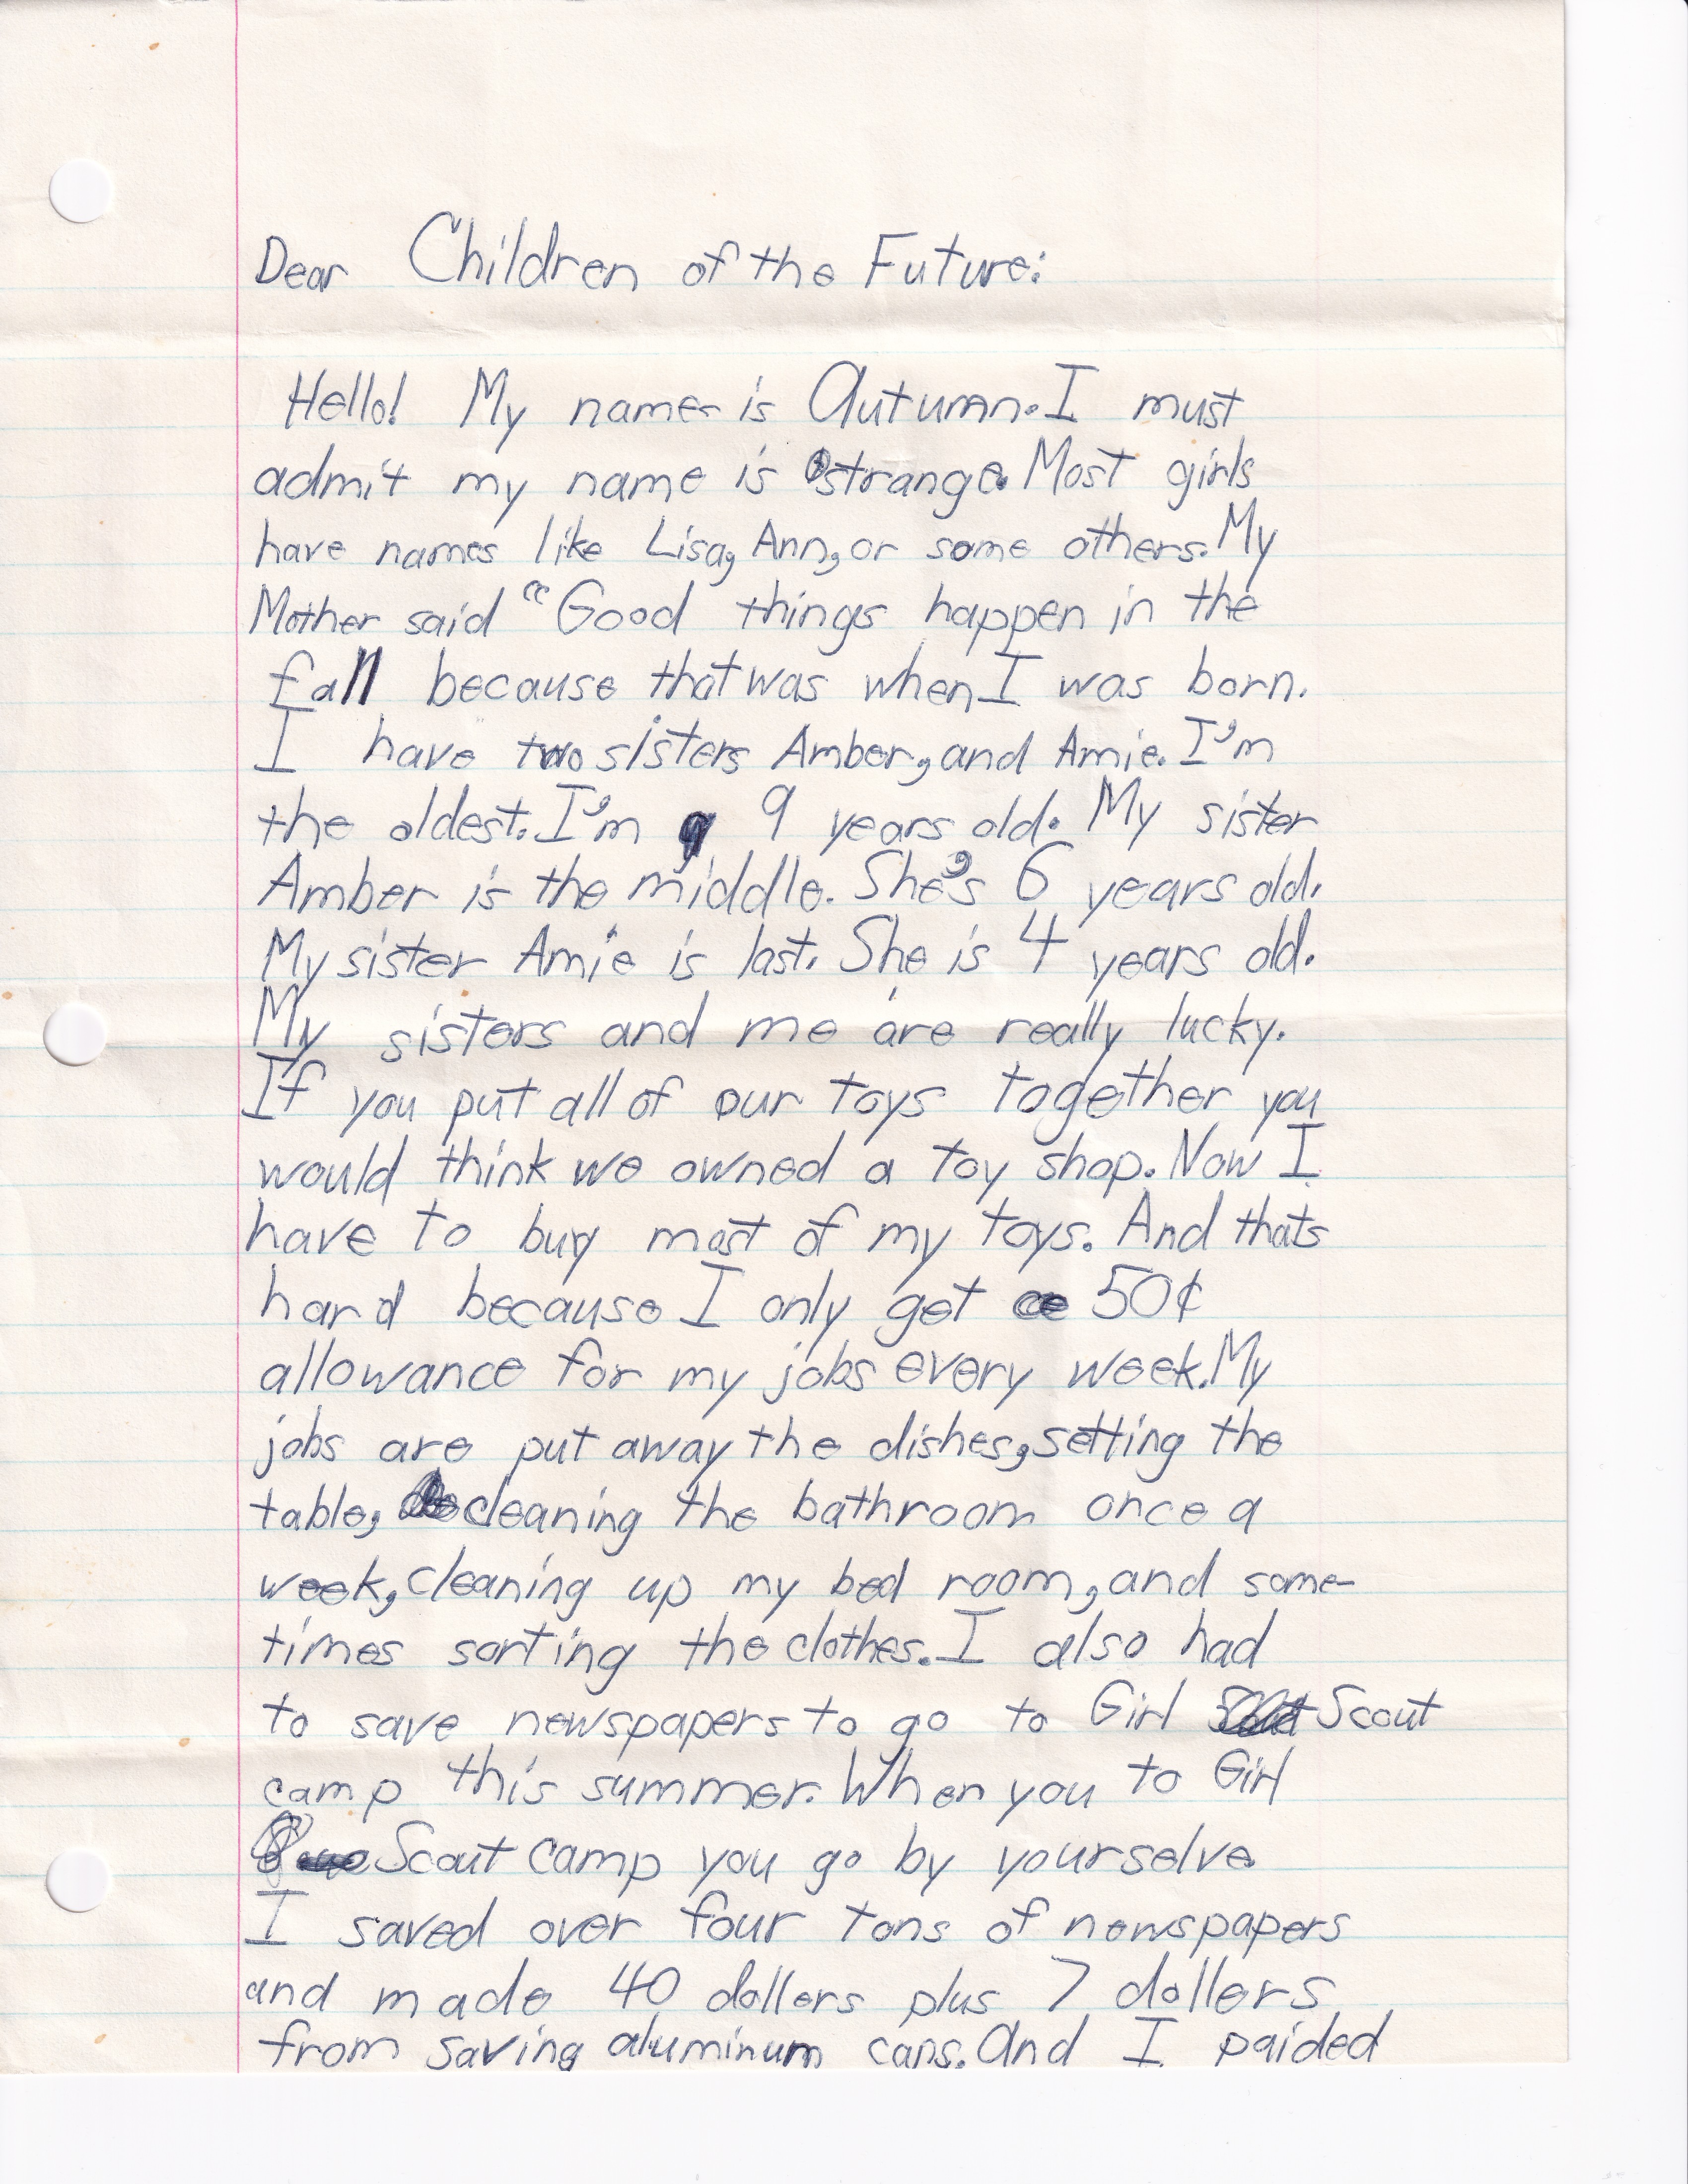 Dear Children of the Future:
Hello! My name is Autumn. I must
admit my name is strange. Most girls
have names like Lisa, Ann, or some others. My
Mother said "Good things happen in the
fall because that was when I was born.
I have two sisters Amber, and Amie. I'm
the oldest. I'm 9 years old. My sister
Amber is the middle. She's 6 years old.
My sister Amie is last. She is 4 years old.
My sisters and me are really lucky.
If you put all of our toys together you
would think we owned a toy shop. Now I
have to buy most of my toys. And thats
hard because I only get 50¢
allowance for my jobs every week. My
jobs are put away the dishes, setting the
table, cleaning the bathroom once a
week, cleaning up my bed room, and some-
times sorting the clothes. I also had
to save newspapers to go to Girl Scout
camp this summer. When you to Girl
Scout camp you go by yourselve
I saved over four tons of newspapers
and made 40 dollers plus 7 dollers
from saving aluminum cans. And I paided